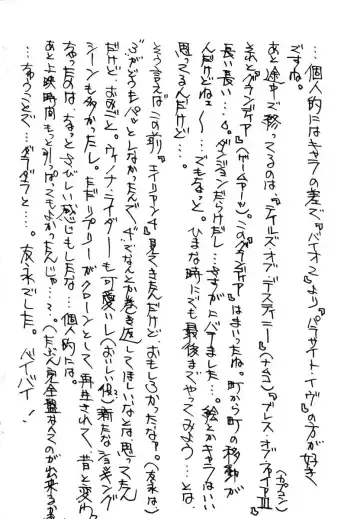 …個人的にはキャラの差で『バイオ2』より『パラサイト・イヴ』の方が好き
ですね。
あと途中で終ってるのは、『テイルズ・オブ・デスティニー』(ナムコ)『ブレス・オブ・ファイアⅢ』(カプコン)
それと『グランディア』(ゲームアーツ)。この『グランディア』はまいったね。町から町の移動が
長い長い…。ダンジョンだらけだし…さすがにバテました…。絵とかキャラはいい
んだけどねェ〜〜…でもなっと。ひまな時にでも最後までやってみよう…とな
思ってるんだけど…。
そう言えばこの前、『エイリアン4』見てきたんだけど、おもしろかったなァ。(友永は)
『3』がどうもパッとしなかったんで、『4』でなんとか巻き返してほしいなとは思ってたん
だけど、おみごと。ウィノナ・ライダーも可愛いし(おいしい役)、新たなショッキング
シーンも多かったし。ただリプリーがクローンとして再生されて、昔と変わっ
ちゃったのは、なっとさびしい感じもしたな…個人的には。
あと上映時間もっと引っぱってもよかったんじゃ…?。(たぶん完全盤なんてのが出来るか
…ちゅうことで…ダラダラと…。友永でした。バイバイ!